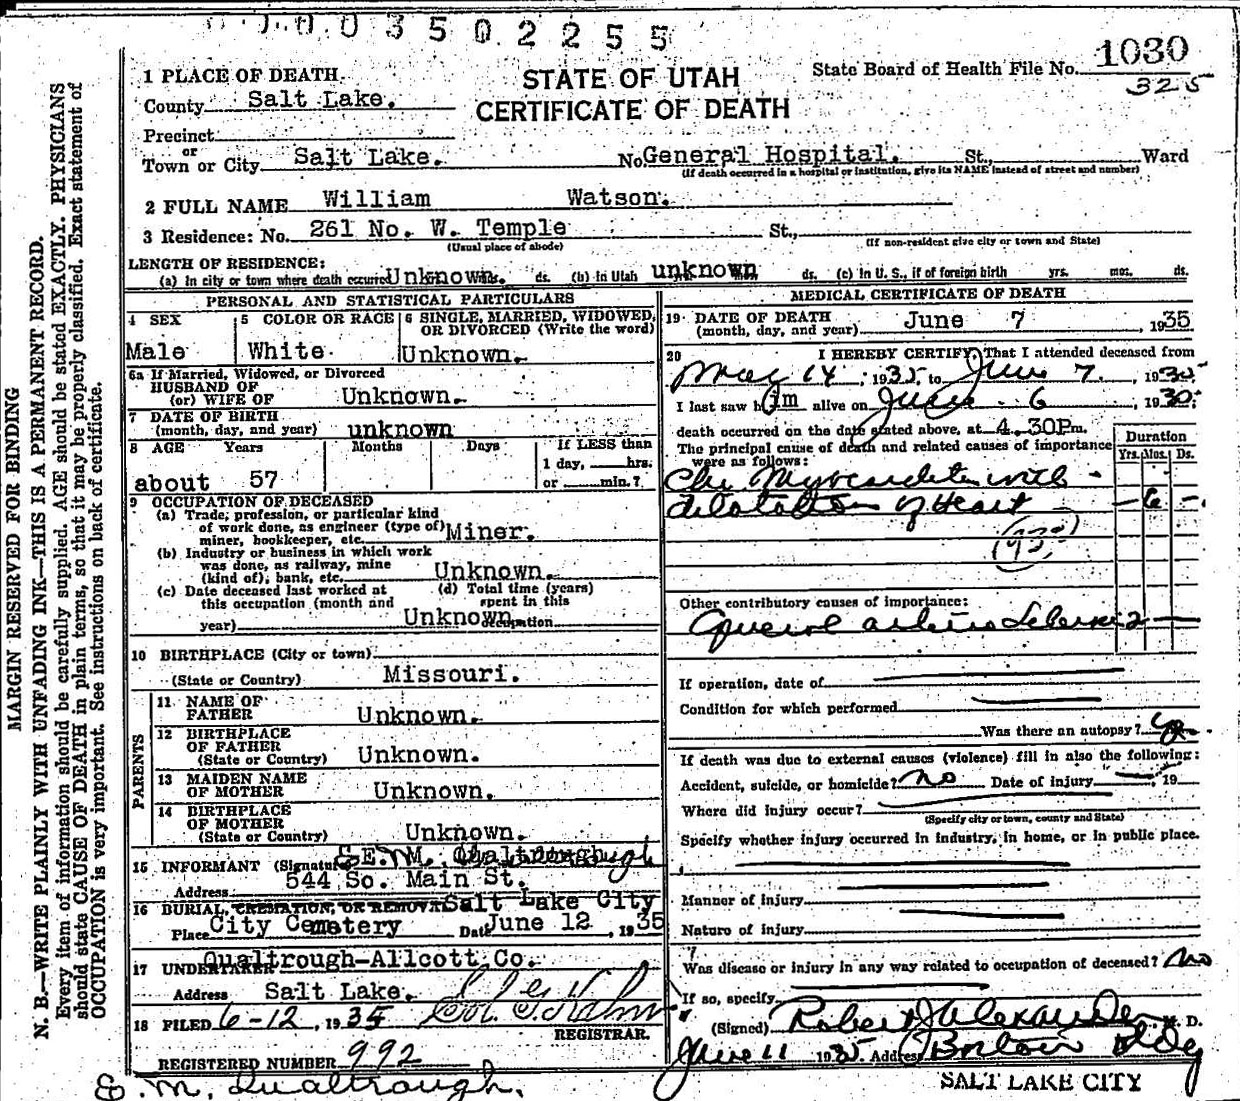 0 0 0 3 5 0 2 2 5 5
1030
325
State Board of Health File No.
STATE OF UTAH
CERTIFICATE OF DEATH
1 PLACE OF DEATH
County Salt Lake.
Precinct
or
Town or City Salt Lake. No. General Hospital. St., Ward
(If death occurred in a hospital or institution, give its NAME instead of street and number)
2 FULL NAME William Watson.
3 Residence: No. 261 No. W. Temple St.,
(Usual place of abode) (If non-resident give city or town and State)
LENGTH OF RESIDENCE:
(a) In city or town where death occurred Unknown. ds. (b) in Utah unknown ds. (c) in U. S., if of foreign birth yrs. mos. ds.
PERSONAL AND STATISTICAL PARTICULARS
4 SEX 5 COLOR OR RACE 6 SINGLE, MARRIED, WIDOWED, OR DIVORCED (Write the word)
Male White Unknown.
6a If Married, Widowed, or Divorced
HUSBAND OF
(or) WIFE OF Unknown.
7 DATE OF BIRTH
(month, day, and year) unknown
8 AGE Years Months Days If LESS than
1 day, hrs.
about 57 or min.?
9 OCCUPATION OF DECEASED
(a) Trade, profession, or particular kind
of work done, as engineer (type of)
miner, bookkeeper, etc. Miner.
(b) Industry or business in which work
was done, as railway, mine
(kind of), bank, etc. Unknown.
(c) Date deceased last worked at (d) Total time (years)
this occupation (month and spent in this
year) Unknown occupation
10 BIRTHPLACE (City or town)
(State or Country) Missouri.
PARENTS
11 NAME OF
FATHER Unknown.
12 BIRTHPLACE
OF FATHER
(State or Country) Unknown.
13 MAIDEN NAME
OF MOTHER Unknown.
14 BIRTHPLACE
OF MOTHER
(State or Country) Unknown.
15 INFORMANT (Signature) E. M. Qualtrough
Address 544 So. Main St.
16 BURIAL, CREMATION, OR REMOVAL Salt Lake City
Place City Cemetery Date June 12, 1935
17 UNDERTAKER Qualtrough-Allcott Co.
Address Salt Lake.
18 FILED 6-12, 1935
REGISTRAR.
REGISTERED NUMBER 992
E. M. Qualtrough.
MEDICAL CERTIFICATE OF DEATH
19 DATE OF DEATH
(month, day, and year) June 7, 1935
20 I HEREBY CERTIFY, That I attended deceased from
May 14, 1935, to June 7, 1935
I last saw him alive on June 6, 1935
death occurred on the date stated above, at 4.30Pm.
The principal cause of death and related causes of importance
were as follows:
Duration
Yrs. Mos. Ds.
Chr Myocarditis with
dilatation of Heart - 6 -
Other contributory causes of importance:
General arterio Sclerosis 2 -
If operation, date of
Condition for which performed
Was there an autopsy?
If death was due to external causes (violence) fill in also the following:
Accident, suicide, or homicide? no Date of injury , 19
Where did injury occur?
(Specify city or town, county and State)
Specify whether injury occurred in industry, in home, or in public place.
Manner of injury
Nature of injury
Was disease or injury in any way related to occupation of deceased? No
If so, specify
(Signed) Robert J Alexander M. D.
June 11 1935 Address Boston Bldg
SALT LAKE CITY
MARGIN RESERVED FOR BINDING
N. B.—WRITE PLAINLY WITH UNFADING INK—THIS IS A PERMANENT RECORD.
Every item of information should be carefully supplied. AGE should be stated EXACTLY. PHYSICIANS
should state CAUSE OF DEATH in plain terms, so that it may be properly classified. Exact statement of
OCCUPATION is very important. See instructions on back of certificate.